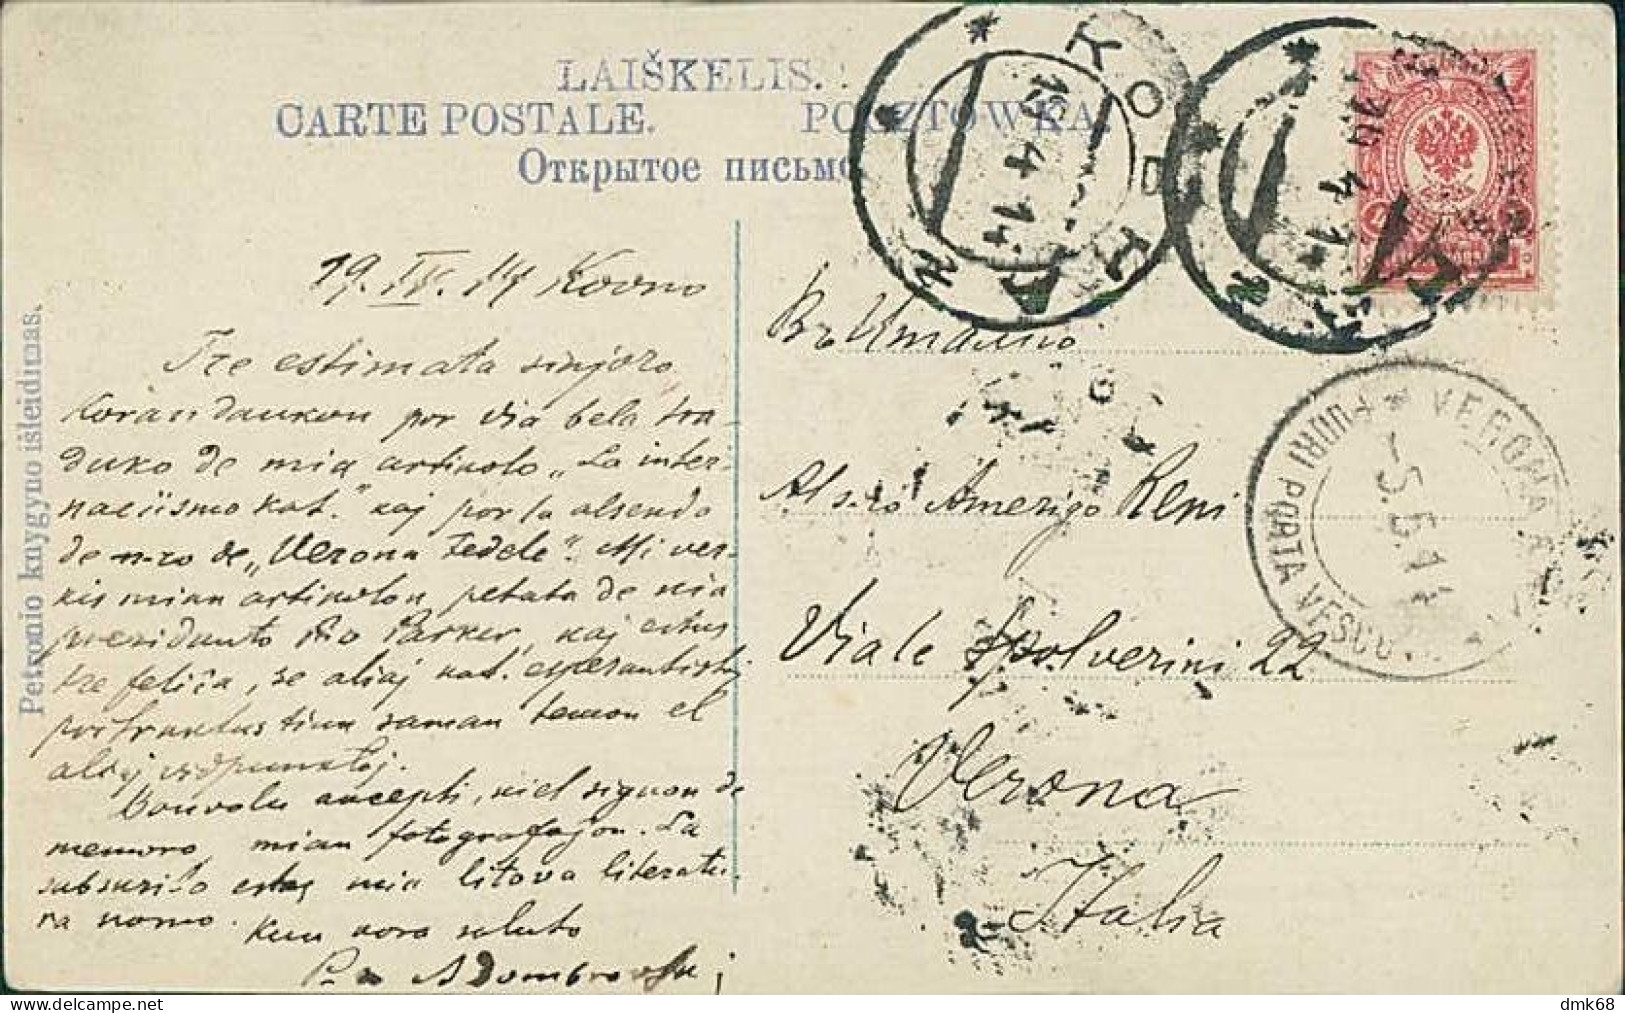 LAIŠKELIS.
CARTE POSTALE. POCZTÓWKA.
Открытое письмо
Petronio knygyno išleidimas.
19. IV. 14 Kovno
Tre estimata sinjoro
Koran dankon por Via bela tra-
duko de mia artikolo „La inter-
naciismo kat." kaj por la alsendo
de n-ro de „Verona Fedele". Mi ver-
kis mian artikolon petata de nia
prezidanto Pio Parker, kaj estus
tre feliĉa, se aliaj kat. esperantistoj
pritraktus tiun saman temon el
aliaj vidpunktoj.
Bonvolu akcepti, kiel signon de
memoro, mian fotografaĵon. La
subskribo estas mia litova literatu-
ra nomo. Kun kora saluto
P-o A Dombrovski
КОВНА
19 4 14
20 4 1
Въ Италию
Al s-ro Amerigo Reni
Viale Spolverini 22
Verona
Italia
VERONA
FUORI PORTA VESCO
-5.5.14
dmk68